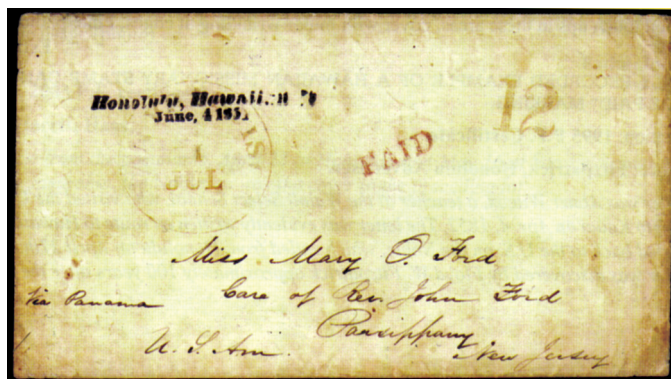 Honolulu, Hawaiian
June, 4 185
1
JUL
PAID
12
Miss Mary O. Ford
Care of Rev. John Ford
Parsippany
New Jersey
Via Panama
U. S. Am.